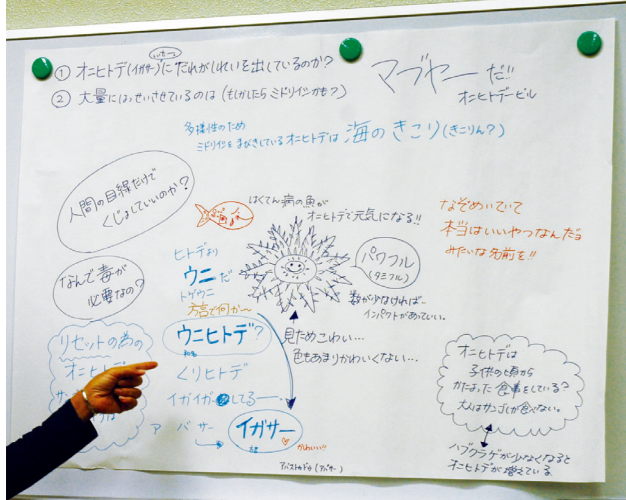 ① オニヒトデ(イガサー)にだれがしれいを出しているのか?
② 大量にはっせいさせているのは(もしかしたらミドリイシかも?)
マブヤーだ!!
オニヒトデービル
多様性のため
ミドリイシをまびきしているオニヒトデは 海のきこり(きこりん?)
人間の目線だけで
くじょしていいのか?
はくてん病の魚が
オニヒトデで元気になる!!
なぞめいていて
本当はいいやつなんだよ
みたいな名前を!!
なんで毒が
必要なの?
ヒトデより
ウニだ
トゲウニ
方言で何か〜
パワフル
(タミフル)
数が少なければ
インパクトがあっていい。
ウニヒトデ?
見ためこわい…
色もあまりかわいくない…
リセットの為の
オニヒトデ
くりヒトデ
イガイガしてる
アバサー
イガサー
かわいい!!
オニヒトデは
子供の頃から
かたよった食事をしている?
大人はサンゴしか食べない。
ハブクラゲが少なくなると
オニヒトデが増えている